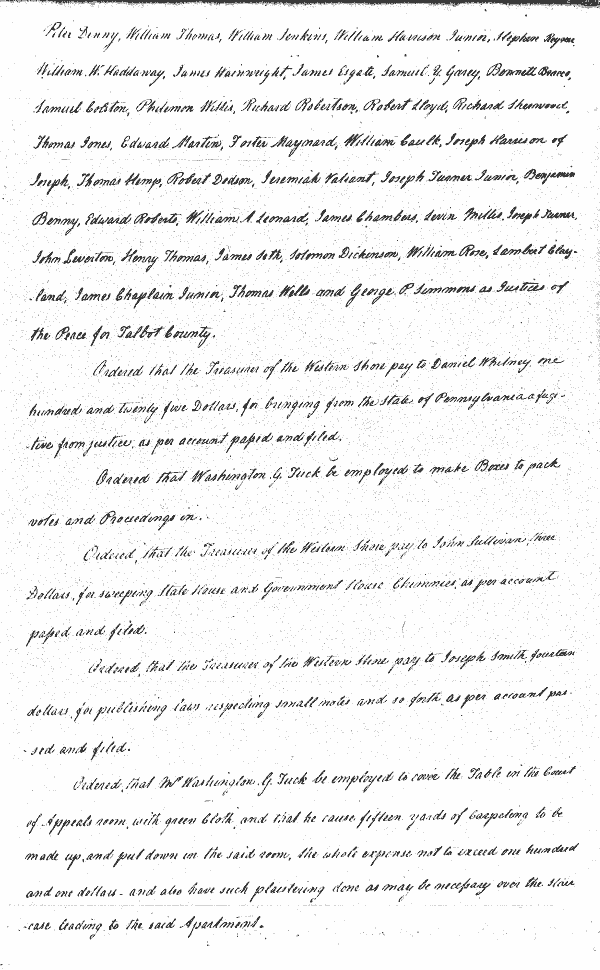 Peter Denny, William Thomas, William Jenkins, William Harrison Junior, Stephen
William W. Haddaway, James Wainwright, James Esgate, Samuel Y. Garey, Bennett Bracco,
Samuel Colston, Philemon Willis, Richard Robertson, Robert Lloyd, Richard Sherwood,
Thomas Jones, Edward Martin, Foster Maynard, William Caulk, Joseph Harrison of
Joseph, Thomas Hemp, Robert Dodson, Jeremiah Valiant, Joseph Turner Junior, Benjamin
Benny, Edward Roberts, William A Leonard, James Chambers, Levin Millis, Joseph Turner,
John Leverton, Henry Thomas, James Seth, Solomon Dickinson, William Rose, Lambert Clay-
-land, James Chaplain Junior, Thomas Wells and George P. Simmons as Justices of
the Peace for Talbot County.
Ordered that the Treasurer of the Western Shore pay to Daniel Whitney one
hundred and twenty five Dollars, for bringing from the State of Pennsylvania a fugi-
-tive from justice, as per account passed and filed.
Ordered that Washington G. Tuck be employed to make Boxes to pack
votes and Proceedings in.
Ordered, that the Treasurer of the Western Shore pay to John Sullivan three
Dollars, for sweeping State House and Government House Chimnies, as per account
passed and filed.
Ordered, that the Treasurer of the Western Shore pay to Joseph Smith, fourteen
dollars, for publishing laws respecting small notes and so forth, as per account pas-
-sed and filed.
Ordered, that Mr Washington G. Tuck be employed to cover the Table in the Court
of Appeals room, with green Cloth, and that he cause fifteen yards of Carpeting to be
made up, and put down in the said room, the whole expense not to exceed one hundred
and one dollars - and also have such plaistering done as may be necessary over the stair
-case leading to the said Apartment.